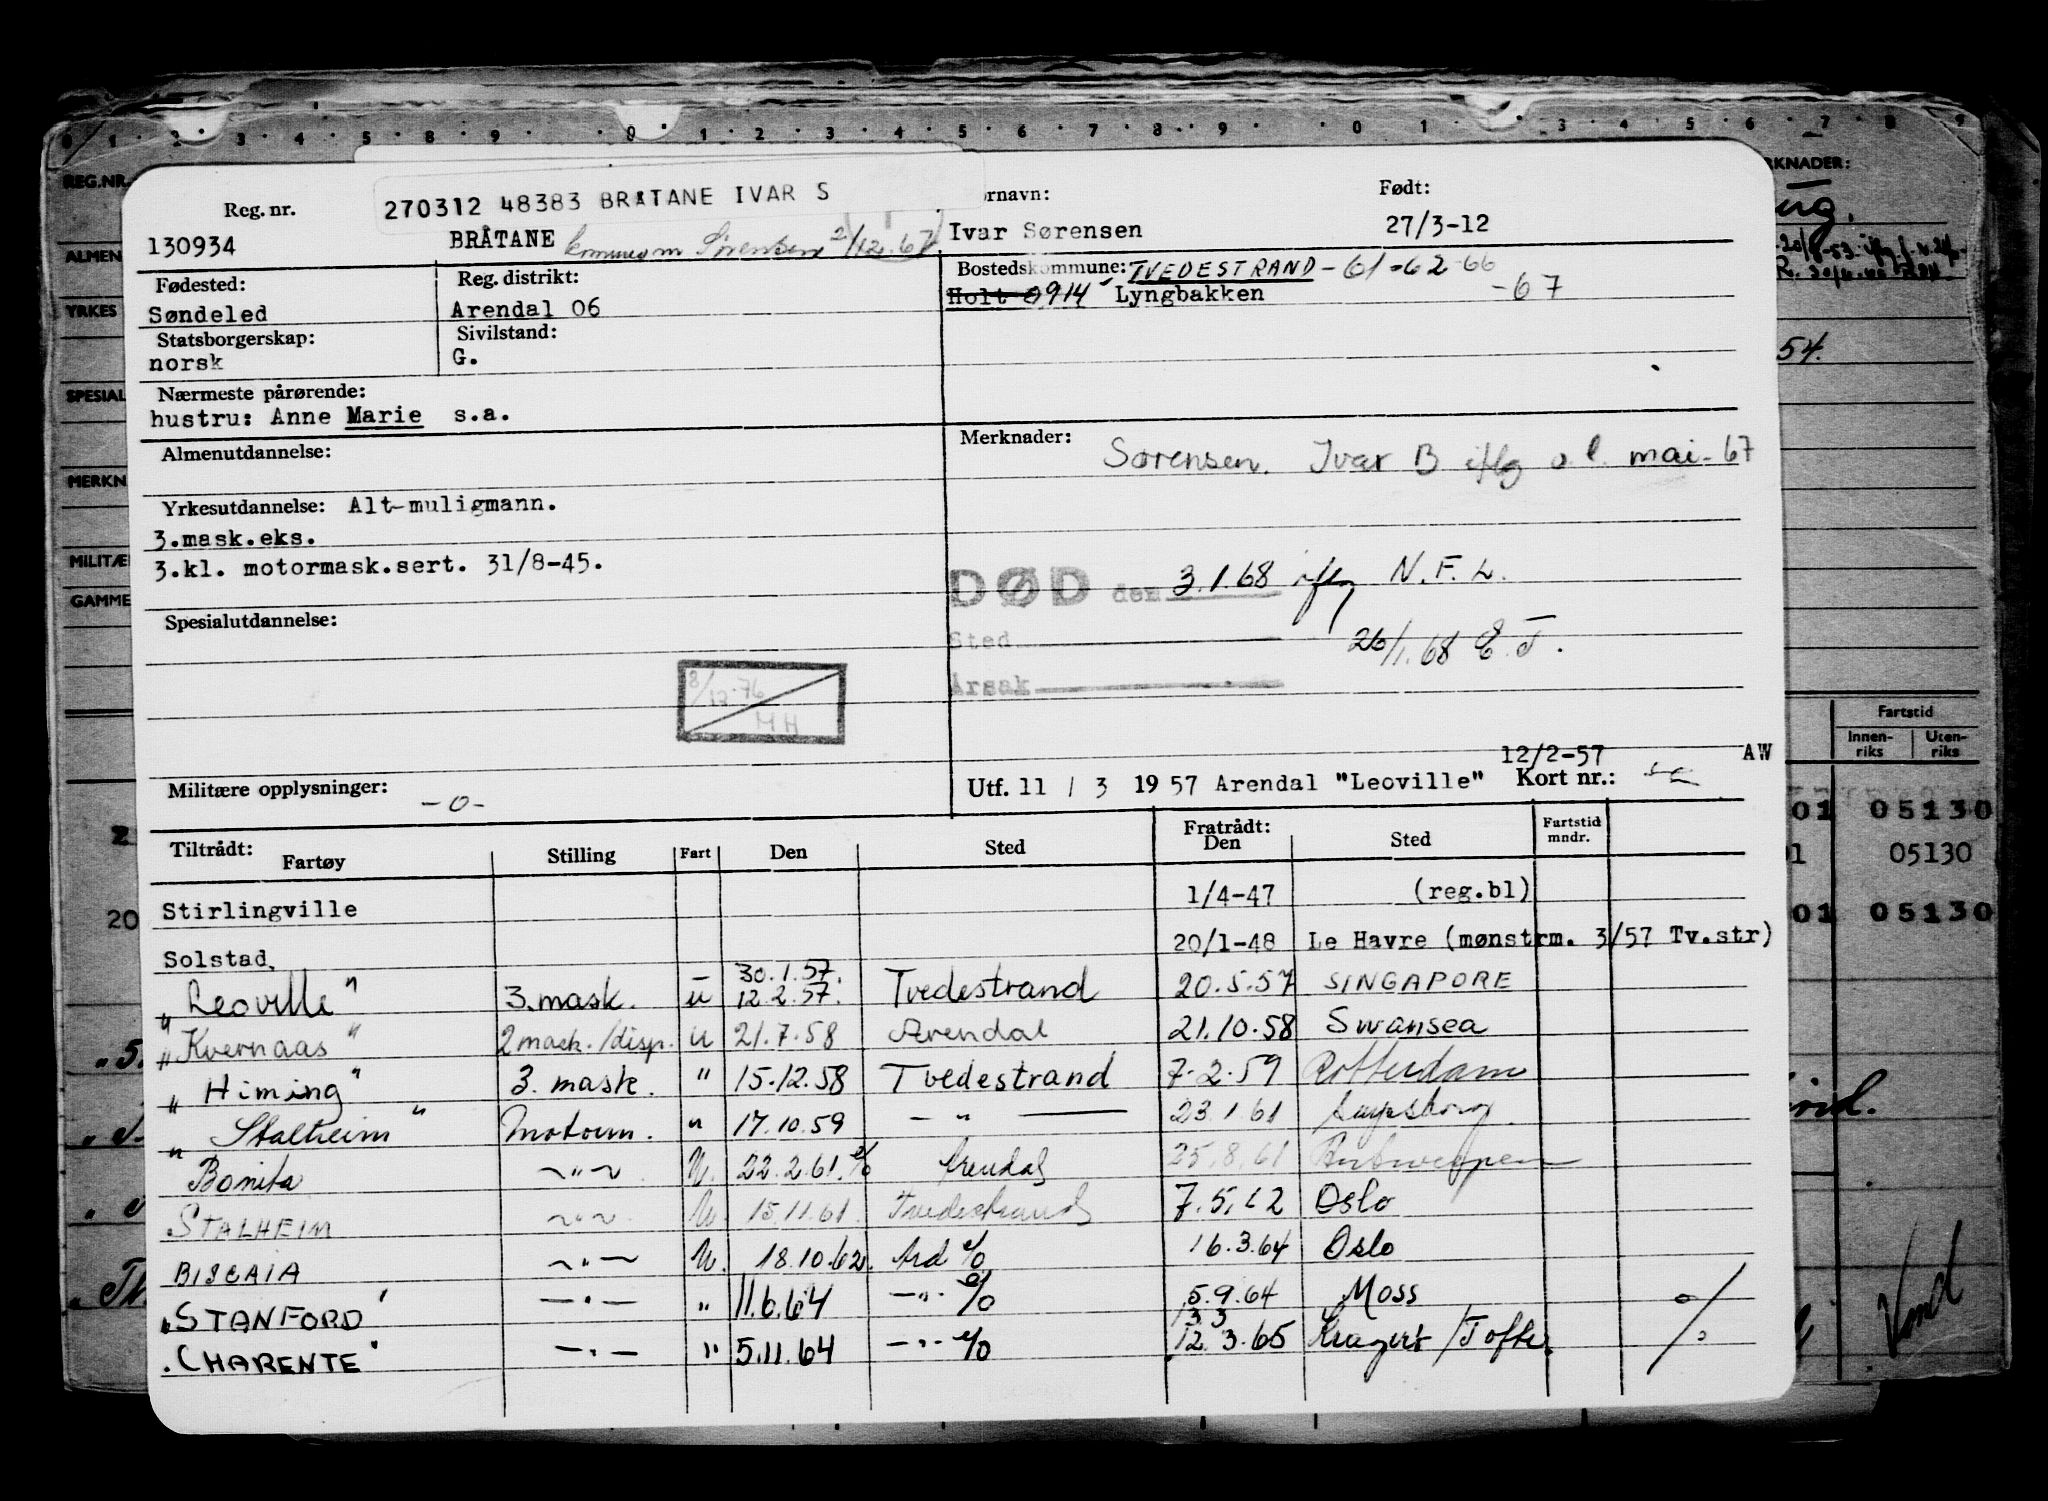 270312 48383 BRÅTANE IVAR S
Reg. nr. Født:
130934 BRÅTANE Sørensen 2/12.67 Ivar Sørensen 27/3-12
Fødested: Reg. distrikt: Bostedskommune: TVEDESTRAND-61-62-66
Søndeled Arendal 06 Holt 0914 Lyngbakken -67
Statsborgerskap: Sivilstand:
norsk G.
Nærmeste pårørende:
hustru: Anne Marie s.a.
Almenutdannelse: Merknader: Sørensen. Ivar B iflg mai-67
Yrkesutdannelse: Alt-muligmann.
3.mask.eks.
3.kl. motormask.sert. 31/8-45. DØD den 3.1.68 iflg N.F.L.
Spesialutdannelse: Sted 26/1.68 E.T.
8/12.76 MH Årsak
12/2-57 AW
Militære opplysninger: -o- Utf. 11 / 3 1957 Arendal "Leoville" Kort nr.:
Tiltrådt: Fartøy Stilling Fart Den Sted Fratrådt: Den Sted Fartstid mndr.
Stirlingville 1/4-47 (reg.bl)
Solstad 20/1-48 Le Havre (mønstrm. 3/57 Tv.str)
30.1.57.
"Leoville" 3.mask. u 12.2.57. Tvedestrand 20.5.57 SINGAPORE
"Kvernaas" 2mask./disp. u 21.7.58 Arendal 21.10.58 Swansea
"Himing" 3. mask. " 15.12.58 Tvedestrand 7.2.59 Rotterdam
"Stalheim" Motorm. " 17.10.59 - " - 23.1.61
Bonita ~"~ U. 22.2.61. Arendal 25.8.61 Antwerpen
STALHEIM ~"~ U. 15.11.61. Tvedestrand 7.5.62 Oslo
BISCAIA ~"~ U. 18.10.62. Ard 16.3.64 Oslo
"STANFORD" -"- " 11.6.64 -"- 5.9.64 Moss
13 3
"CHARENTE" -"- " 5.11.64 -"- 12.3.65 Kragerø/Tofte
REG.NR.
YRKES
SPESIAL
MERKN
MILITÆ
GAMME
54.
Fartstid
Innen-riks Uten-riks
01 05130
05130
01 05130
20